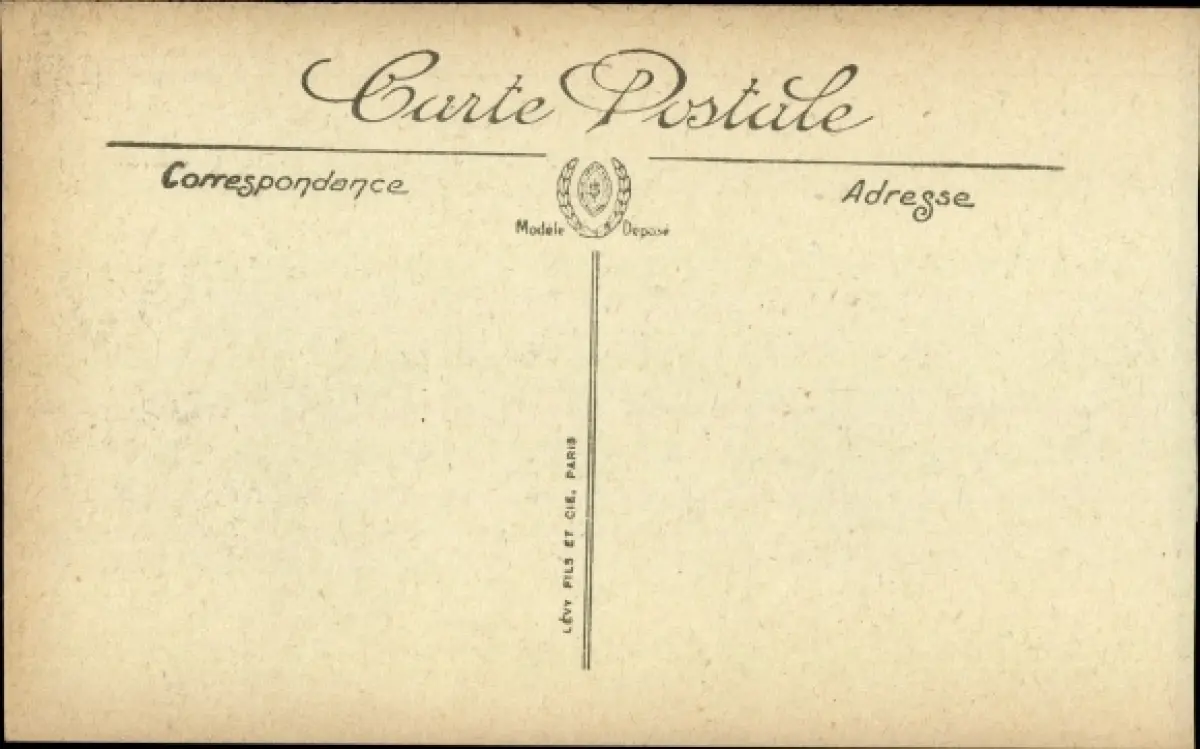 Carte Postale
Correspondance
Adresse
Modèle Déposé
LÉVY FILS ET CIE, PARIS